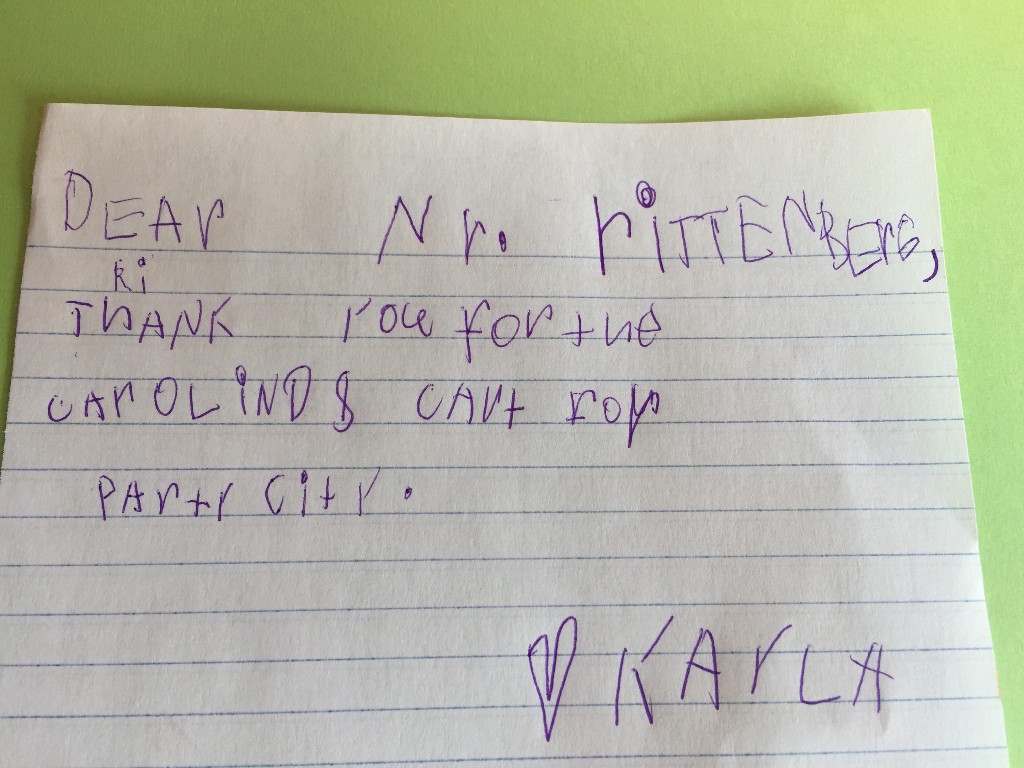 DEAr Nr. riTTENBErG,
ki
THANK YOU for the
CArOLiND& CArt FOr
PArty City.
♡ KArLA